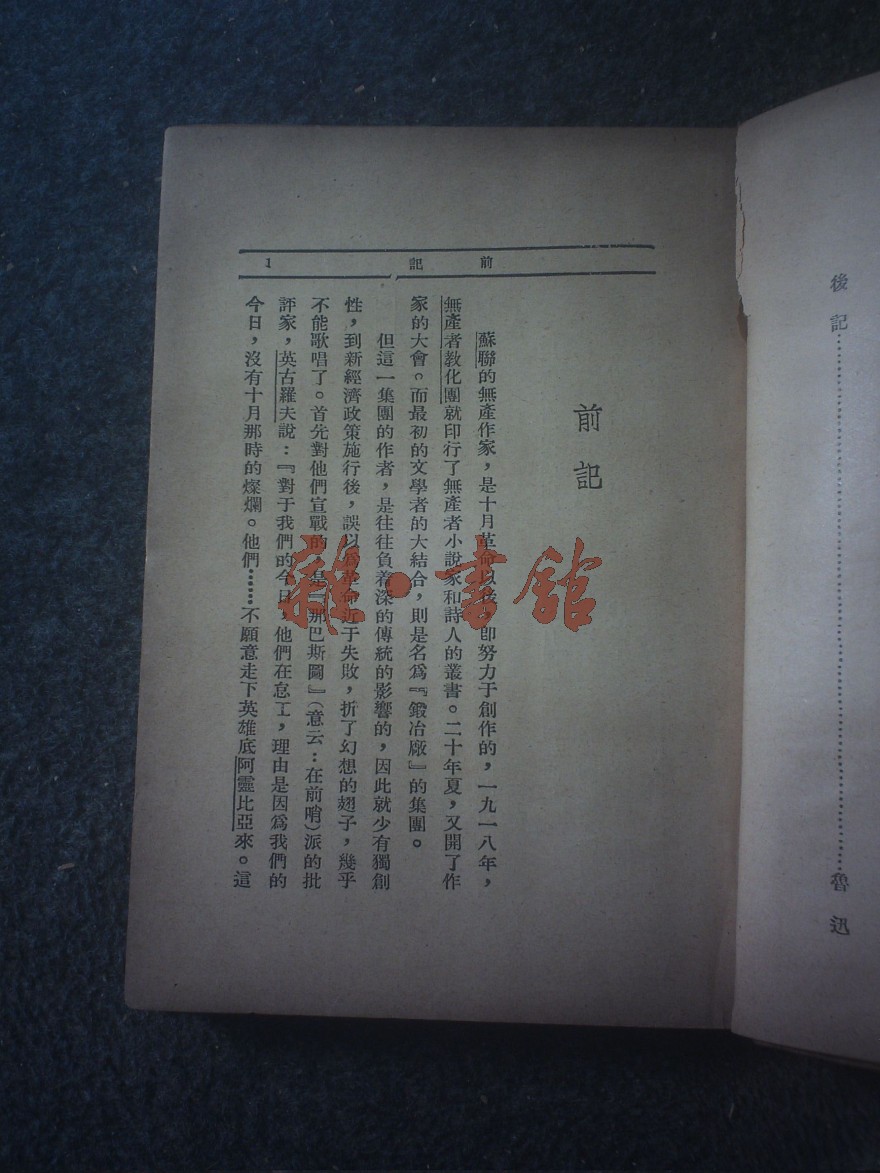 後記……………………………………魯迅
前記
1
前記
蘇聯的無產作家，是十月革命以後，卽努力于創作的，一九一八年，
無產者教化團就印行了無產者小說家和詩人的叢書。二十年夏，又開了作
家的大會。而最初的文學者的大結合，則是名爲『鍛冶廠』的集團。
但這一集團的作者，是往往負着深的傳統的影響的，因此就少有獨創
性，到新經濟政策施行後，誤以爲革命近于失敗，折了幻想的翅子，幾乎
不能歌唱了。首先對他們宣戰的，是『那巴斯圖』（意云：在前哨）派的批
評家，英古羅夫說：『對于我們的今日，他們在怠工，理由是因爲我們的
今日，沒有十月那時的燦爛。他們……不願意走下英雄底阿靈比亞來。這
雜·書館